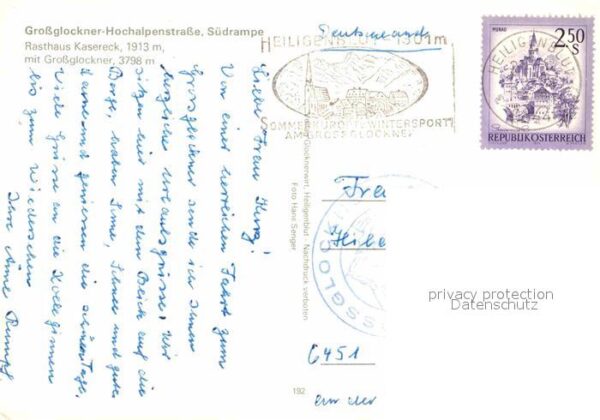 Großglockner-Hochalpenstraße, Südrampe
Rasthaus Kasereck, 1913 m,
mit Großglockner, 3798 m
Deutschland
HEILIGENBLUT 1301m
SOMMER UND WINTERSPORT
AM GROSSGLOCKNER
HEILIGENBLUT
MURAU
2.50
S
REPUBLIK ÖSTERREICH
Liebe Frau
Von einer herrlichen Fahrt zum
Grossglockner sende ich Ihnen
herzliche Urlaubsgrüsse. Wir
sitzen hier mit dem Blick auf die
Berge, haben Sonne, Schnee und gute
Laune und geniessen die schönen Tage.
Viele Grüsse an die Kolleginnen
bis zum Wiedersehen
Ihre
Heiligenblut - Nachdruck verboten
Foto Hans Senger
192
6451
an der
privacy protection
Datenschutz